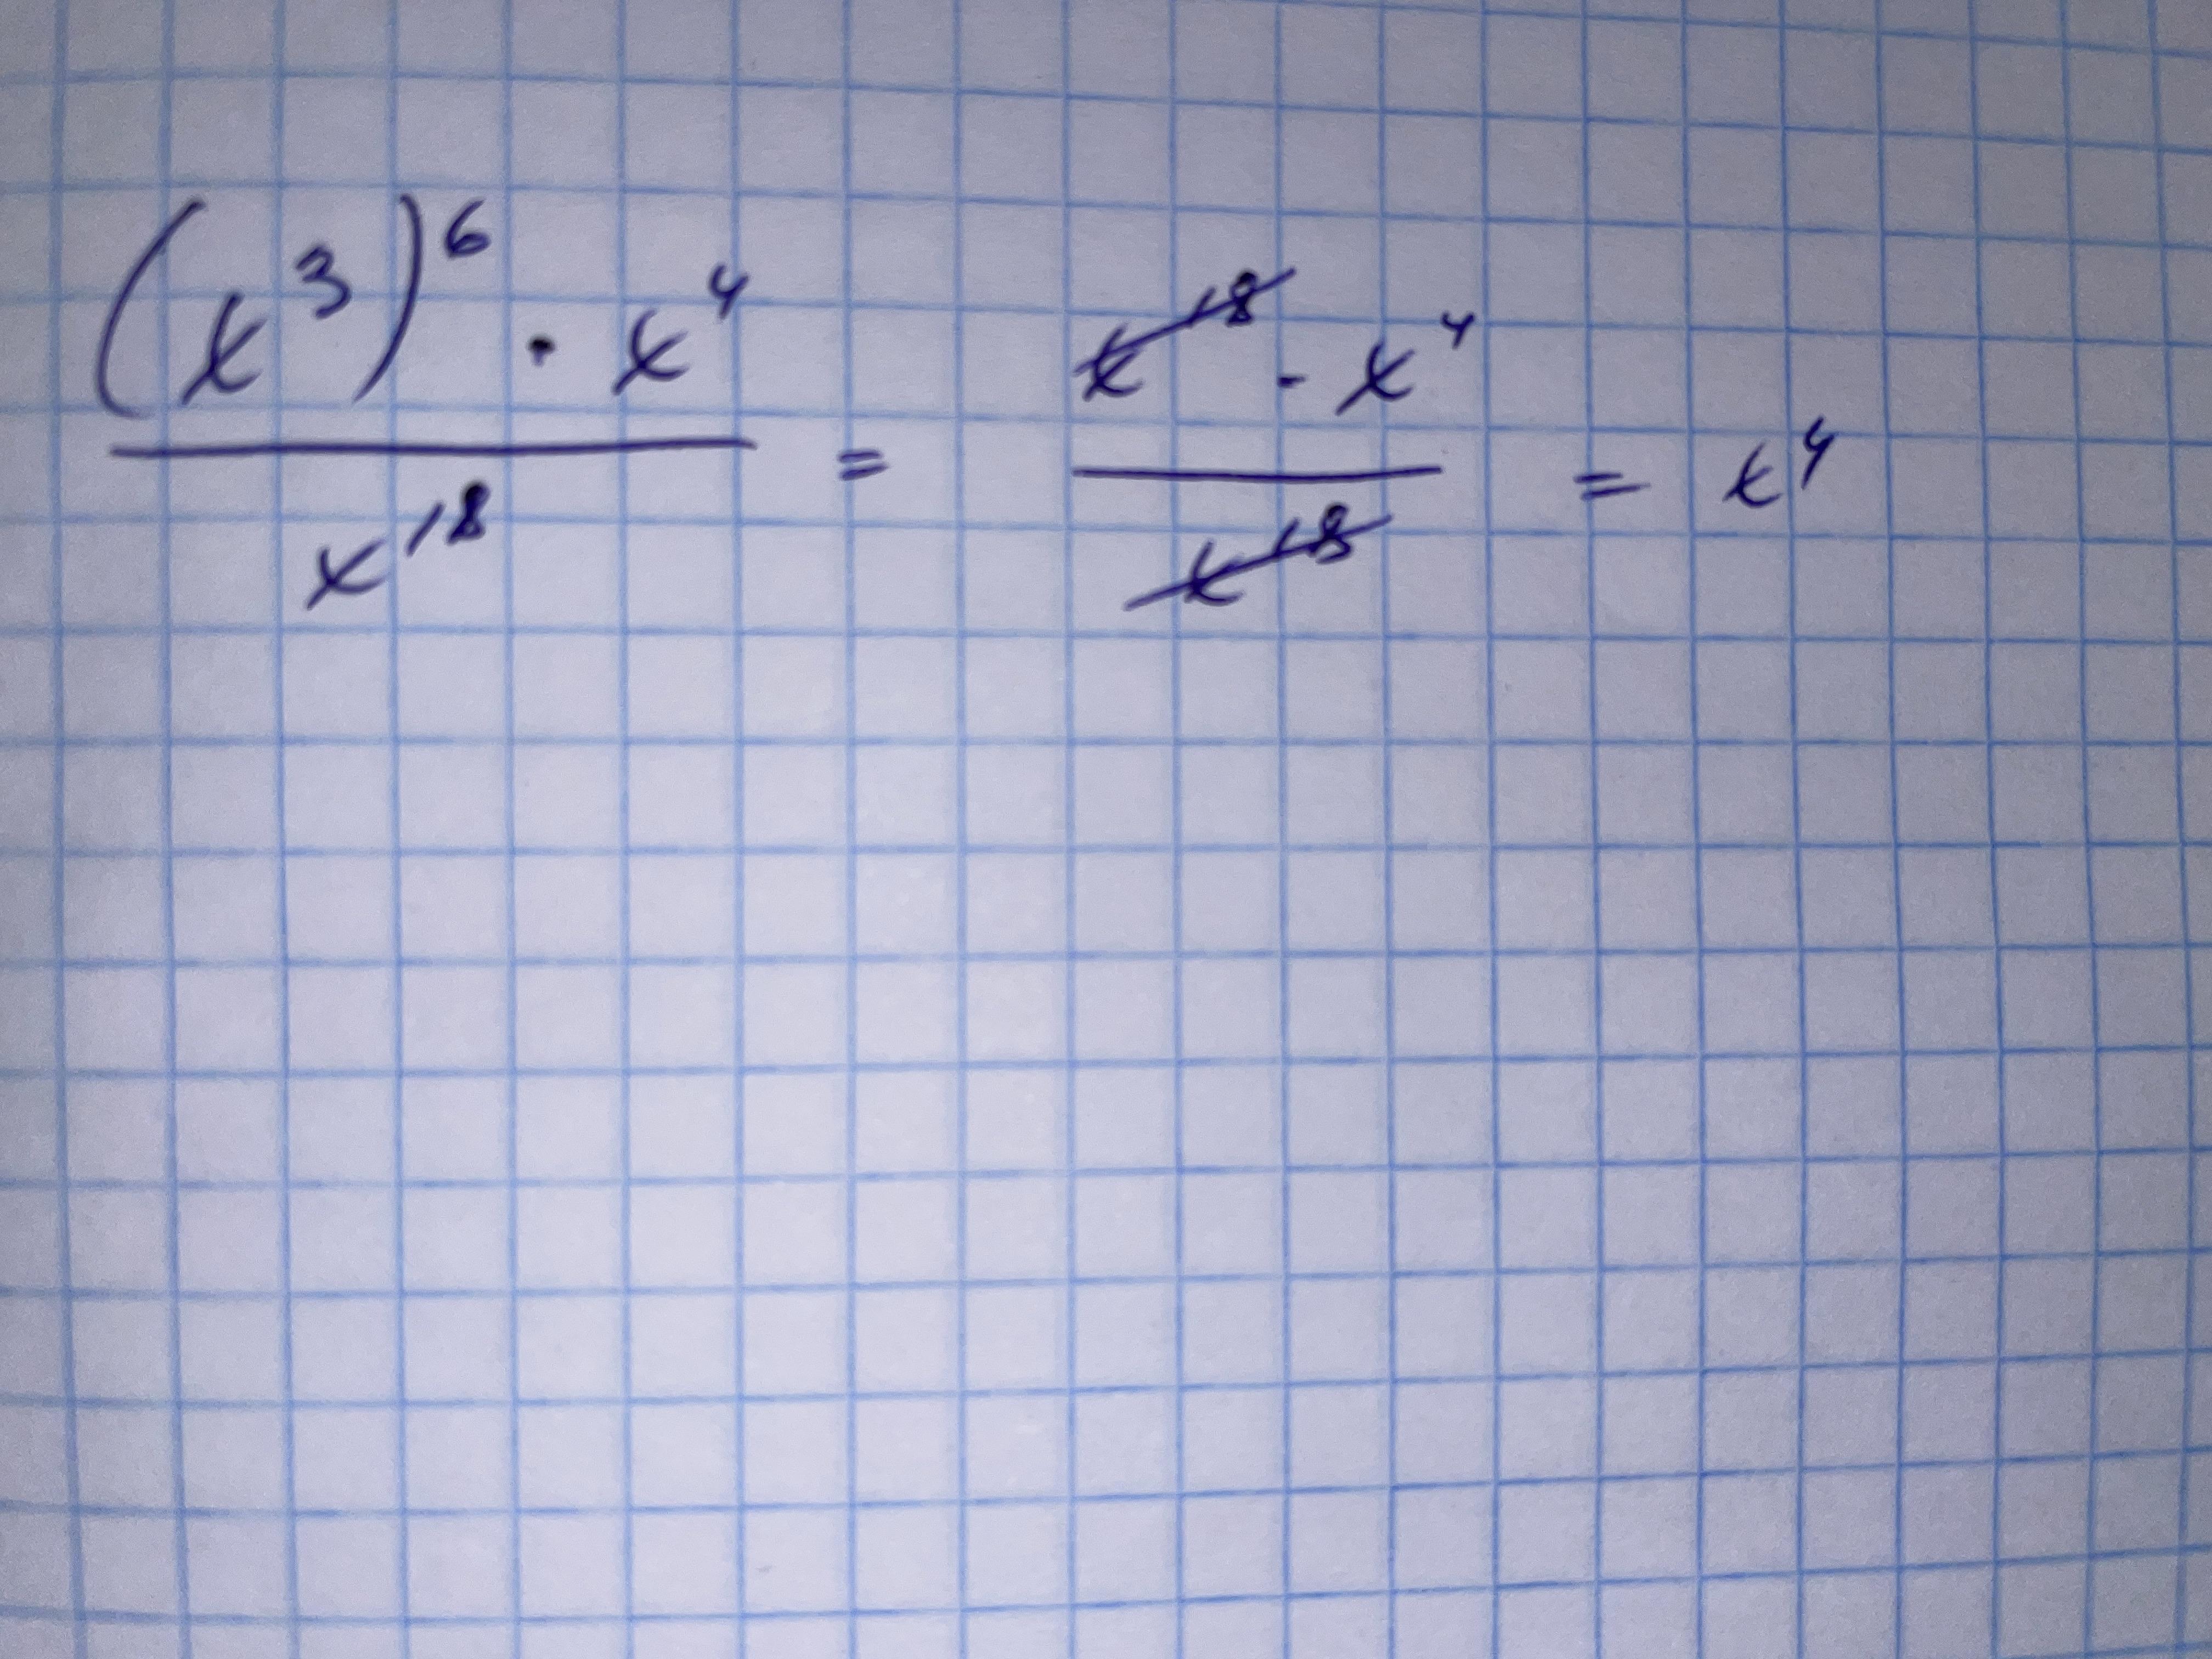 (x³)⁶ · x⁴ / x¹⁸ = x¹⁸ · x⁴ / x¹⁸ = x⁴